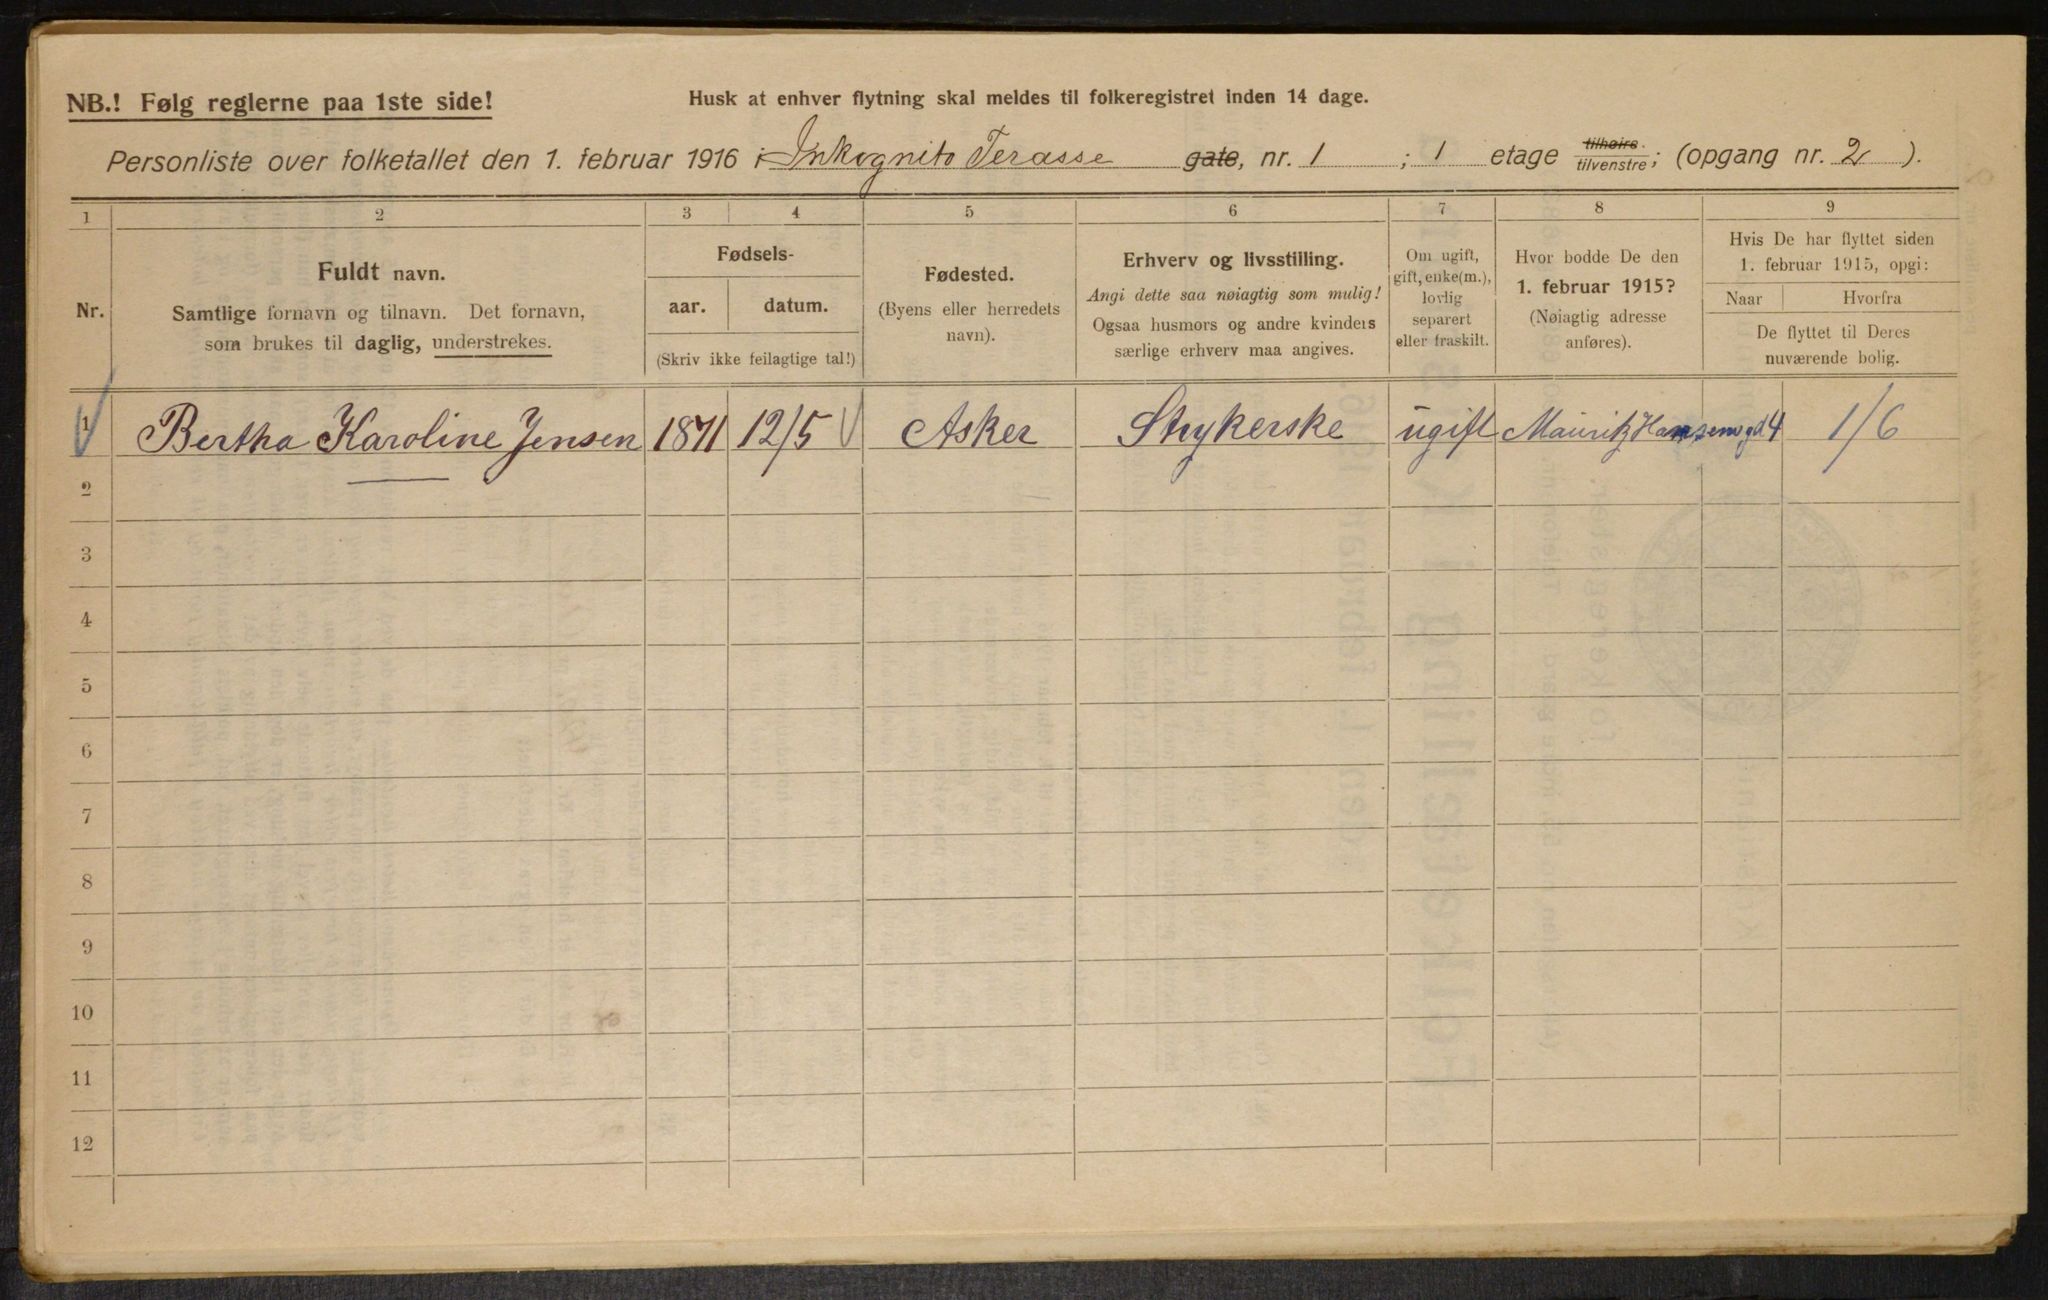 NB.! Følg reglerne paa 1ste side!
Husk at enhver flytning skal meldes til folkeregistret inden 14 dage.
Personliste over folketallet den 1. februar 1916 i Inkognito Terasse gate, nr. 1 ; 1 etage tilhøire tilvenstre; (opgang nr. 2 ).
1 2 3 4 5 6 7 8 9
Nr.
Fuldt navn.
Samtlige fornavn og tilnavn. Det fornavn,
som brukes til daglig, understrekes.
Fødsels-
aar. datum.
(Skriv ikke feilagtige tal!)
Fødested.
(Byens eller herredets
navn).
Erhverv og livsstilling.
Angi dette saa nøiagtig som mulig!
Ogsaa husmors og andre kvinders
særlige erhverv maa angives.
Om ugift,
gift, enke(m.),
lovlig
separert
eller fraskilt.
Hvor bodde De den
1. februar 1915?
(Nøiagtig adresse
anføres).
Hvis De har flyttet siden
1. februar 1915, opgi:
Naar Hvorfra
De flyttet til Deres
nuværende bolig.
1 Bertha Karoline Jensen 1871 12/5 Asker Strykerske ugift Mauritz Hansensgd 4 1/6
2
3
4
5
6
7
8
9
10
11
12